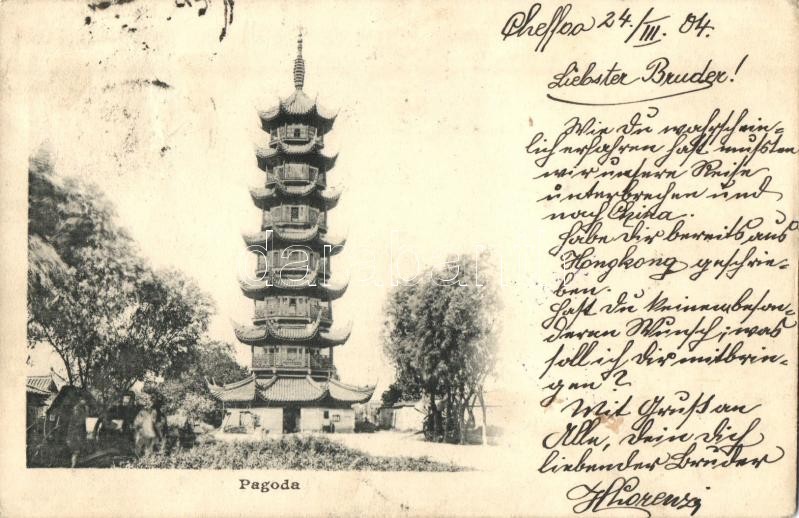 Cheffoo 24/III. 04.
Liebster Bruder!
Wie Du wahrschein=
lich erfahren hast mußten
wir unsere Reise
unterbrechen und
nach China.
Habe Dir bereits aus
Hongkong geschrie=
ben.
Hast Du keinen beson=
deren Wunsch, was
soll ich Dir mitbrin=
gen?
Mit Gruß an
Alle, dein Dich
liebender Bruder
Pagoda
darabanth